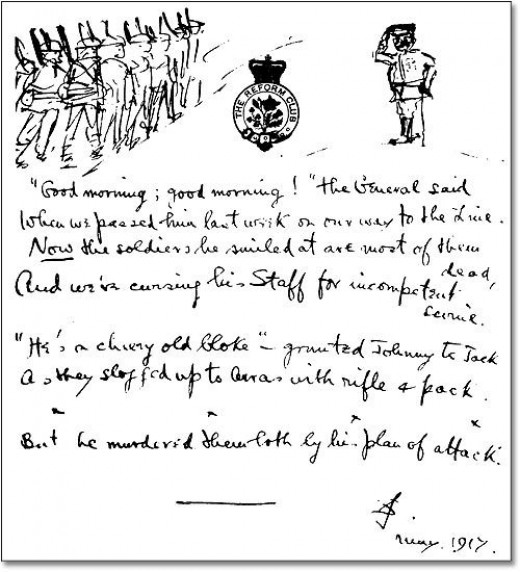 THE REFORM CLUB
"Good morning; good morning!" the General said
When we passed him last week on our way to the Line.
Now the soldiers he smiled at are most of them dead,
And we're cursing his Staff for incompetent swine.
"He's a cheery old bloke" – grunted Johnny to Jack
As they slogged up to Arras with rifle & pack.
But he murdered them both by his plan of attack.
May. 1917.